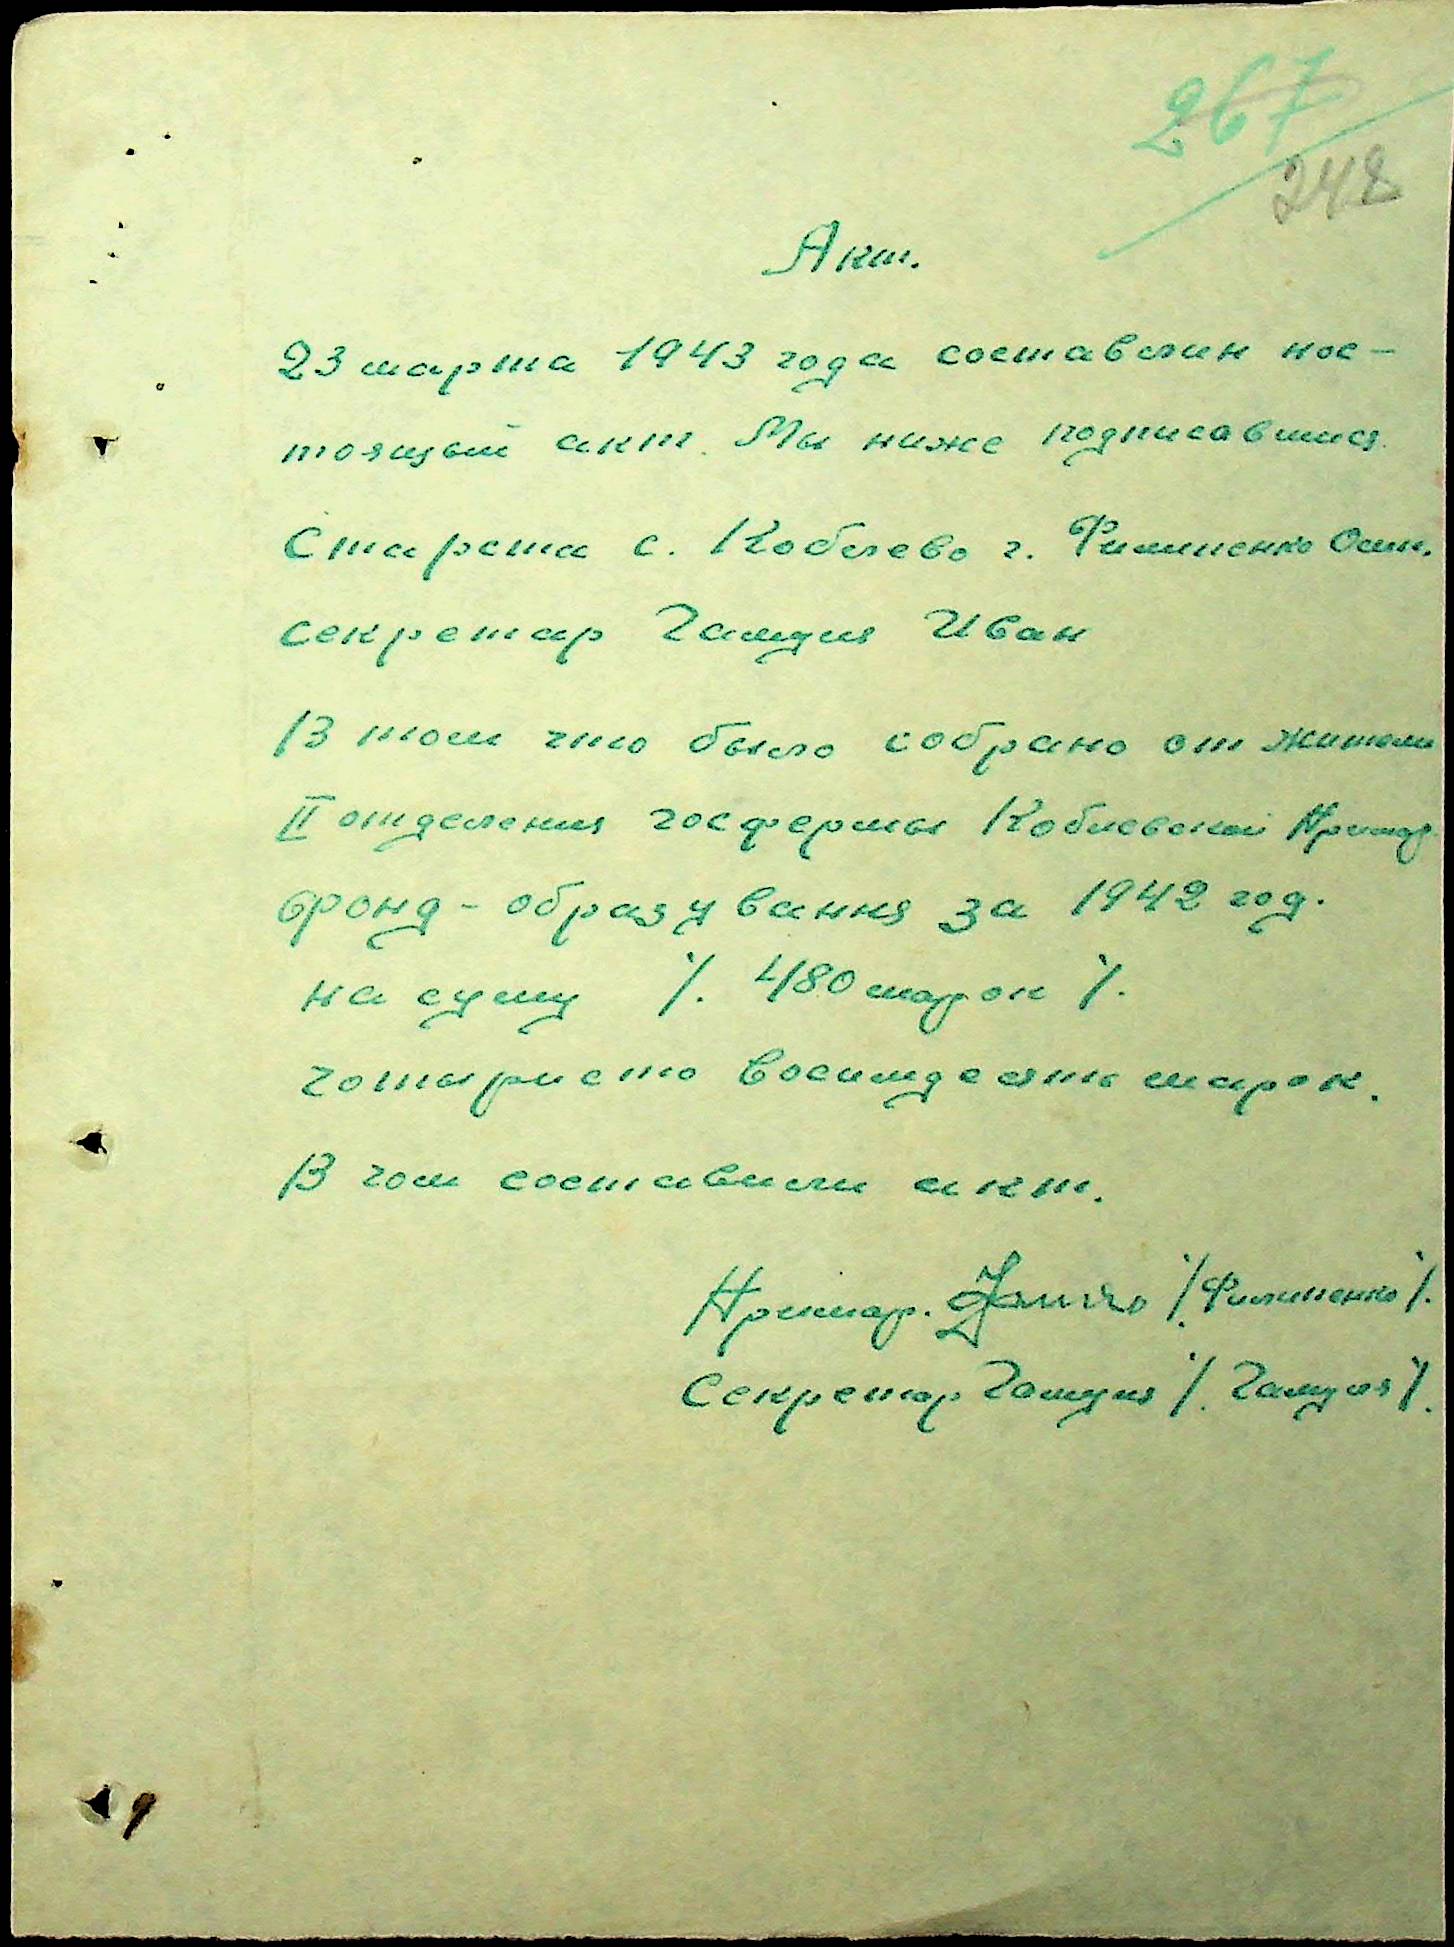 267
248
Акт.
23 марта 1943 года составлин нос-
тоящый акт. Мы ниже подписавшися
Староста с. Коблево г. Филипенко Осип.
секретар Гамуля Иван
В том что было собрано от жители
II отделения госфермы Коблевской Примар.
фонд - образування за 1942 год.
на суму ·/. 480 марок ·/.
чотыристо восимдесять марок.
В чом составили акт.
Примар. /. Филипенко /.
Секретар Гамуля /. Гамуля /.